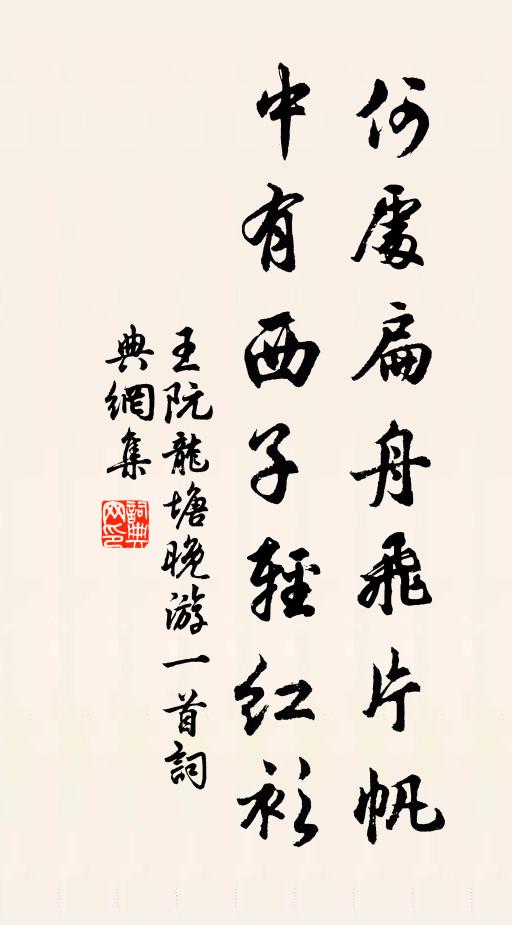 何處扁舟飛片帆
中有西子輕紅衫
王阮龍塘晚游一首詞
典網集
詞典
网印